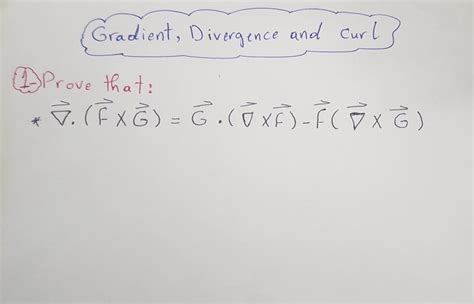 Gradient, Divergence and Curl
1- Prove that:
* ∇⃗ . (F⃗ × G⃗) = G⃗ . (∇⃗ × F⃗) - F⃗ (∇⃗ × G⃗)